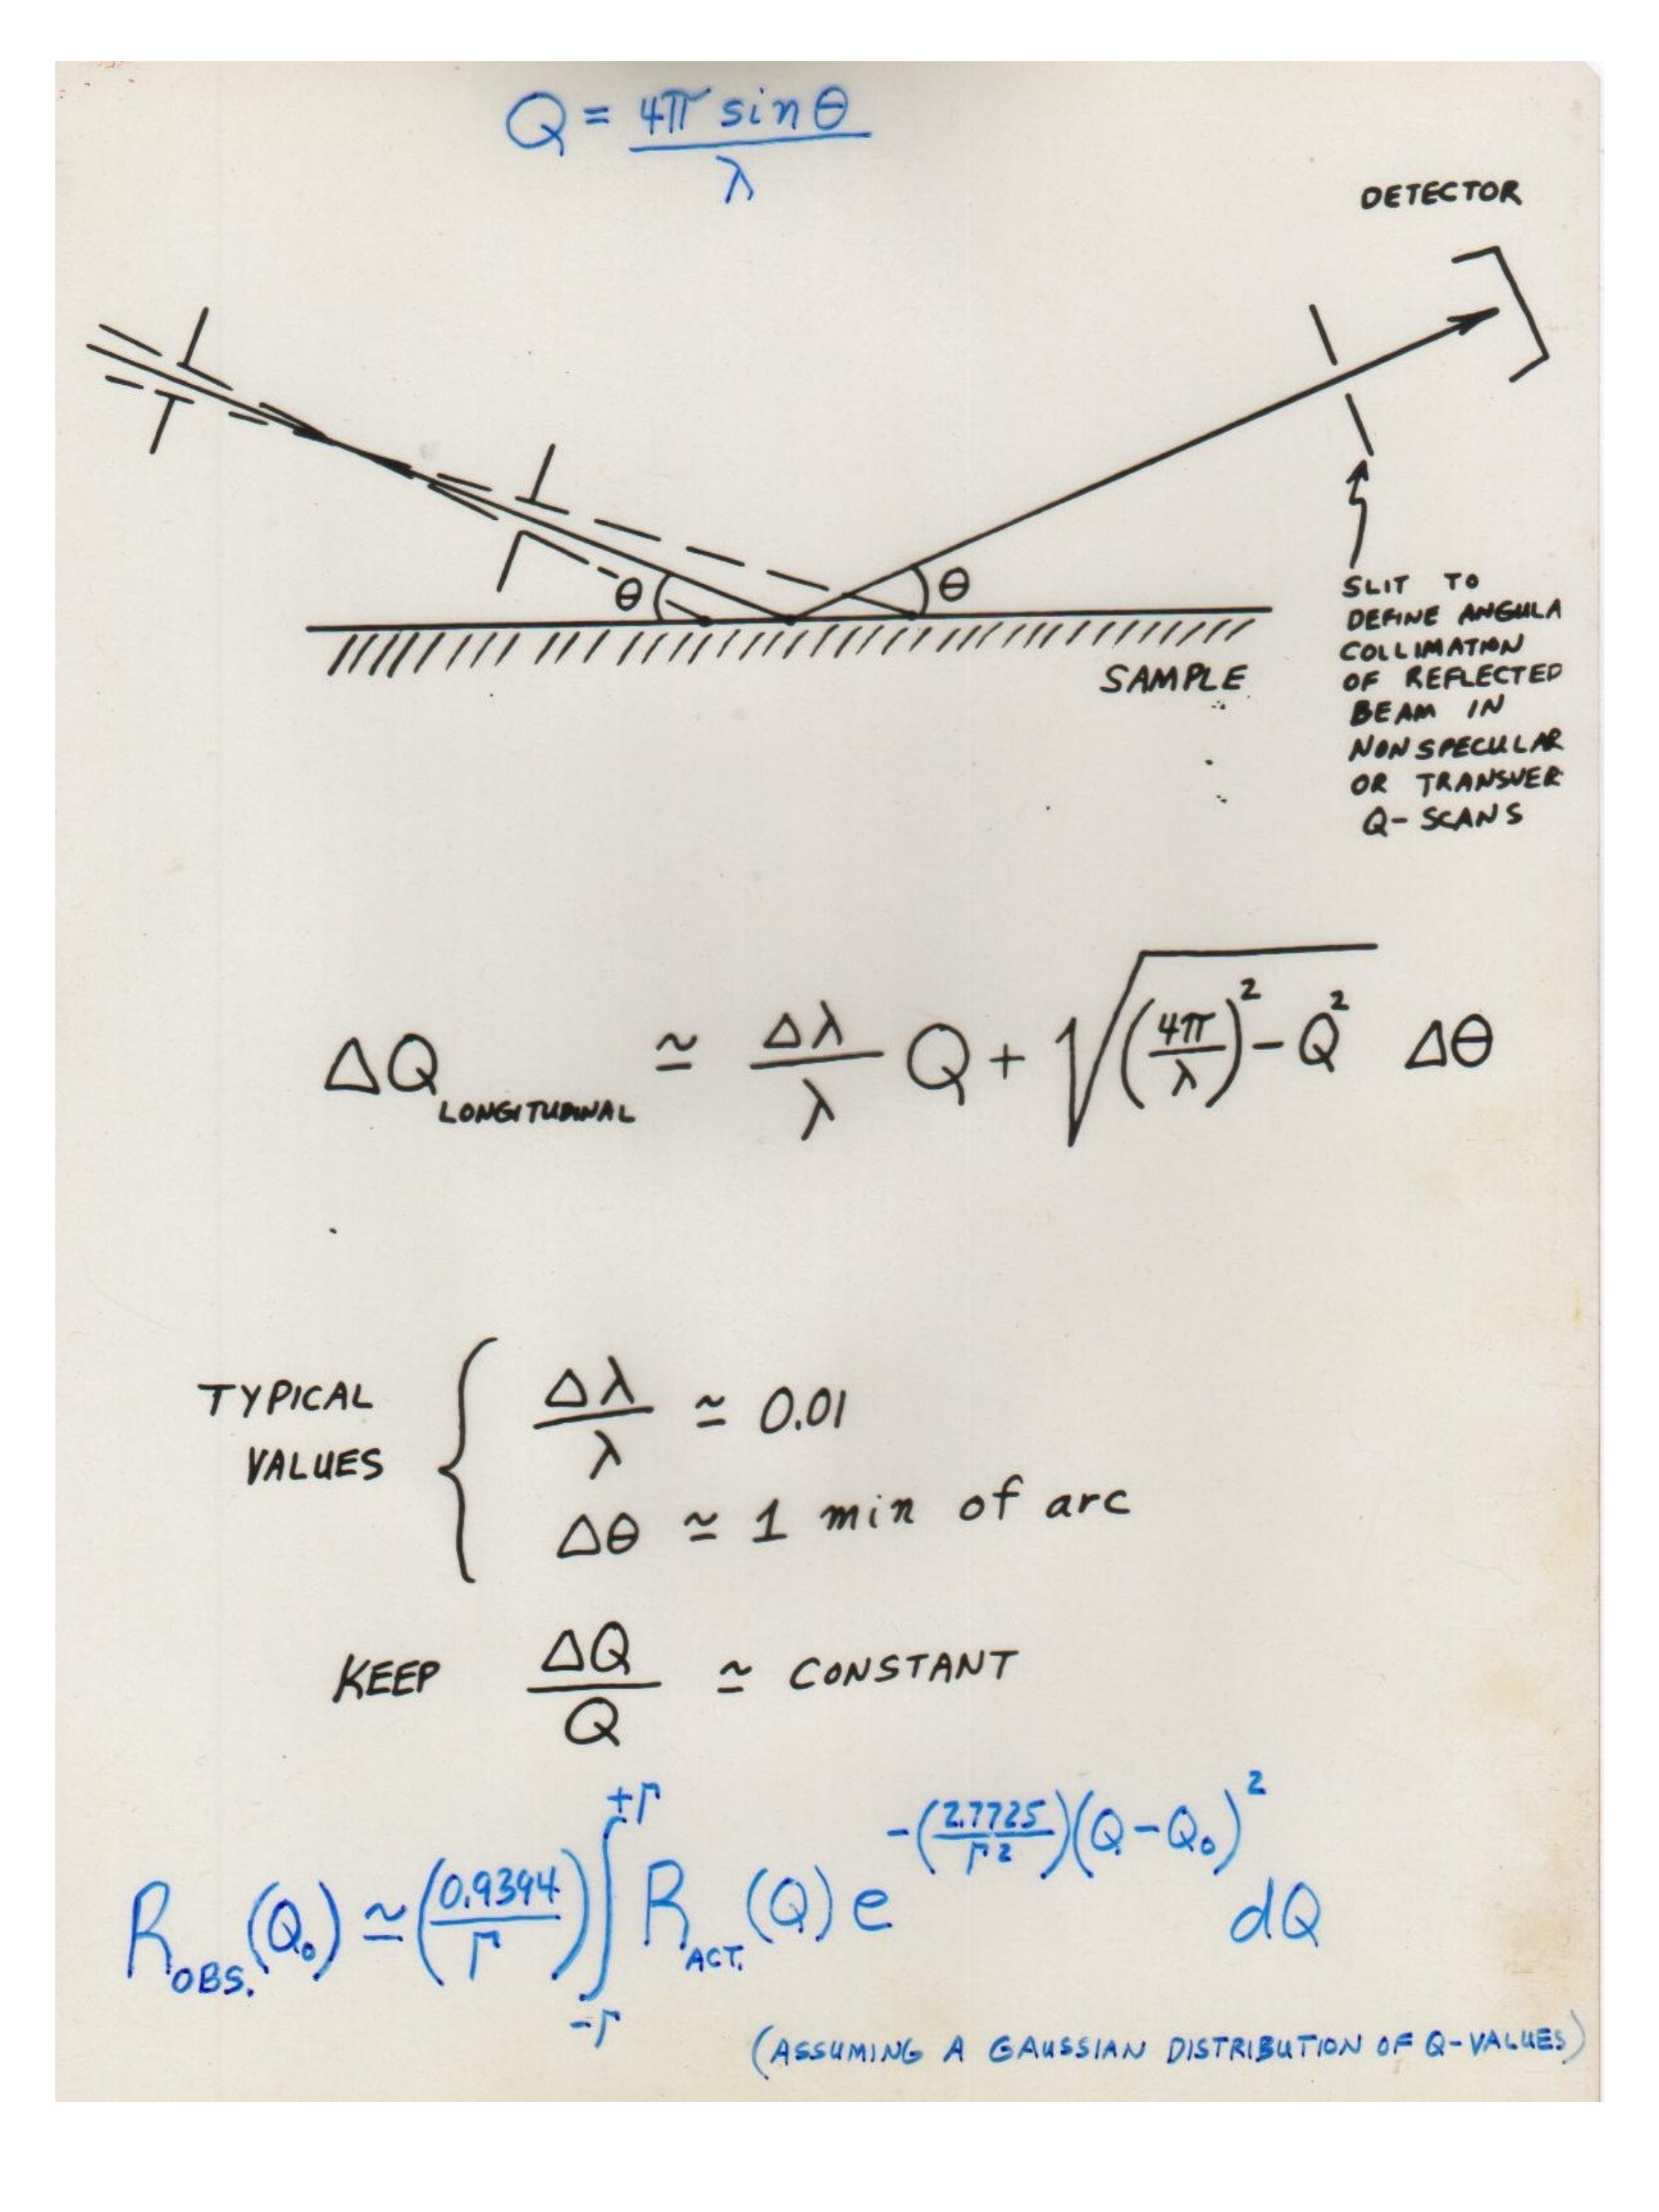 Q = 4π sinθ / λ
DETECTOR
θ
θ
SAMPLE
SLIT TO
DEFINE ANGULA
COLLIMATION
OF REFLECTED
BEAM IN
NONSPECULAR
OR TRANSVER
Q- SCANS
ΔQ LONGITUDINAL ≃ Δλ/λ Q + √((4π/λ)² - Q²) Δθ
TYPICAL
VALUES
Δλ/λ ≃ 0.01
Δθ ≃ 1 min of arc
KEEP ΔQ/Q ≃ CONSTANT
R OBS. (Q₀) ≃ (0.9394/Γ) ∫ -Γ +Γ R ACT. (Q) e -(2.7725/Γ²)(Q-Q₀)² dQ
(ASSUMING A GAUSSIAN DISTRIBUTION OF Q-VALUES)